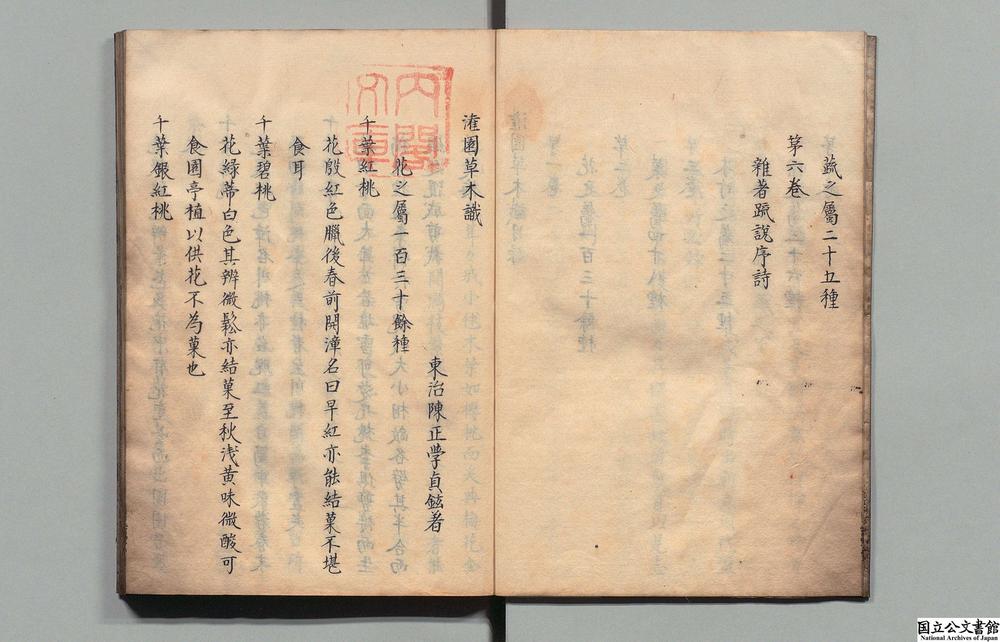 蔬之屬二十五種
第六卷
雜著䟽說序詩
灌園草木識
東治陳正學貞鉉著
花之屬一百三十餘種
千葉紅桃
花殷紅色臘後春前開漳名曰早紅亦能結菓不堪
食耳
千葉碧桃
花綠蒂白色其辨微鬆亦結菓至秋浅黄味微酸可
食園亭植以供花不為菓也
千葉銀紅桃
内閣
文庫
国立公文書館
National Archives of Japan